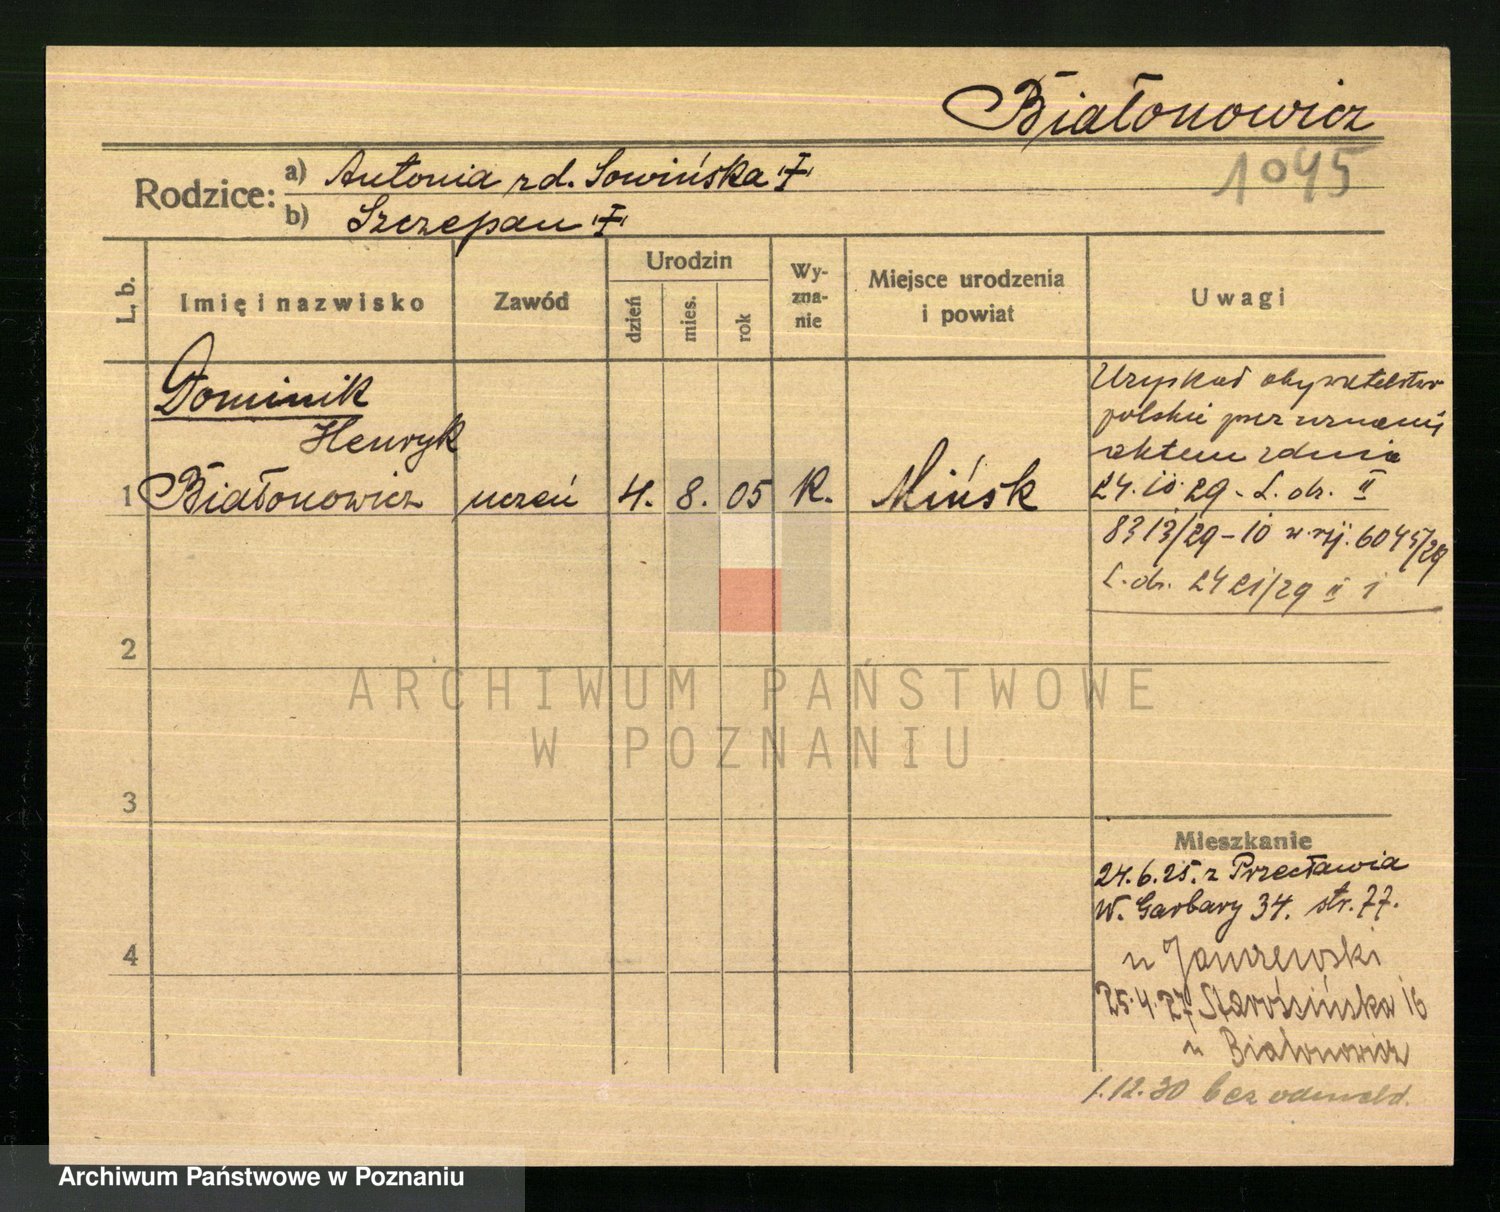 Białonowicz
1045
Rodzice: a) Antonia rd. Sowińska "†"
b) Szczepan "†"
L. b.
Imię i nazwisko
Zawód
Urodzin
dzień
mies.
rok
Wy-
zna-
nie
Miejsce urodzenia
i powiat
Uwagi
Dominik
Henryk
1 Białonowicz uczeń 4. 8. 05 R. Mińsk
Uzyskał obywatelstwo
polskie przez uznanie
aktem z dnia
24.10.29 - L. dz. II
8313/29-10 w rij. 6045/29
L. dz. 2421/29 II 1
2
3
4
Mieszkanie
24.6.25. z Przecławia
W. Garbary 34. str. 77.
u Janrzewski
25.4.27 Starościńska 16
u Białonowicz
1.12.30 bez odmeld.
ARCHIWUM PAŃSTWOWE
W POZNANIU
Archiwum Państwowe w Poznaniu